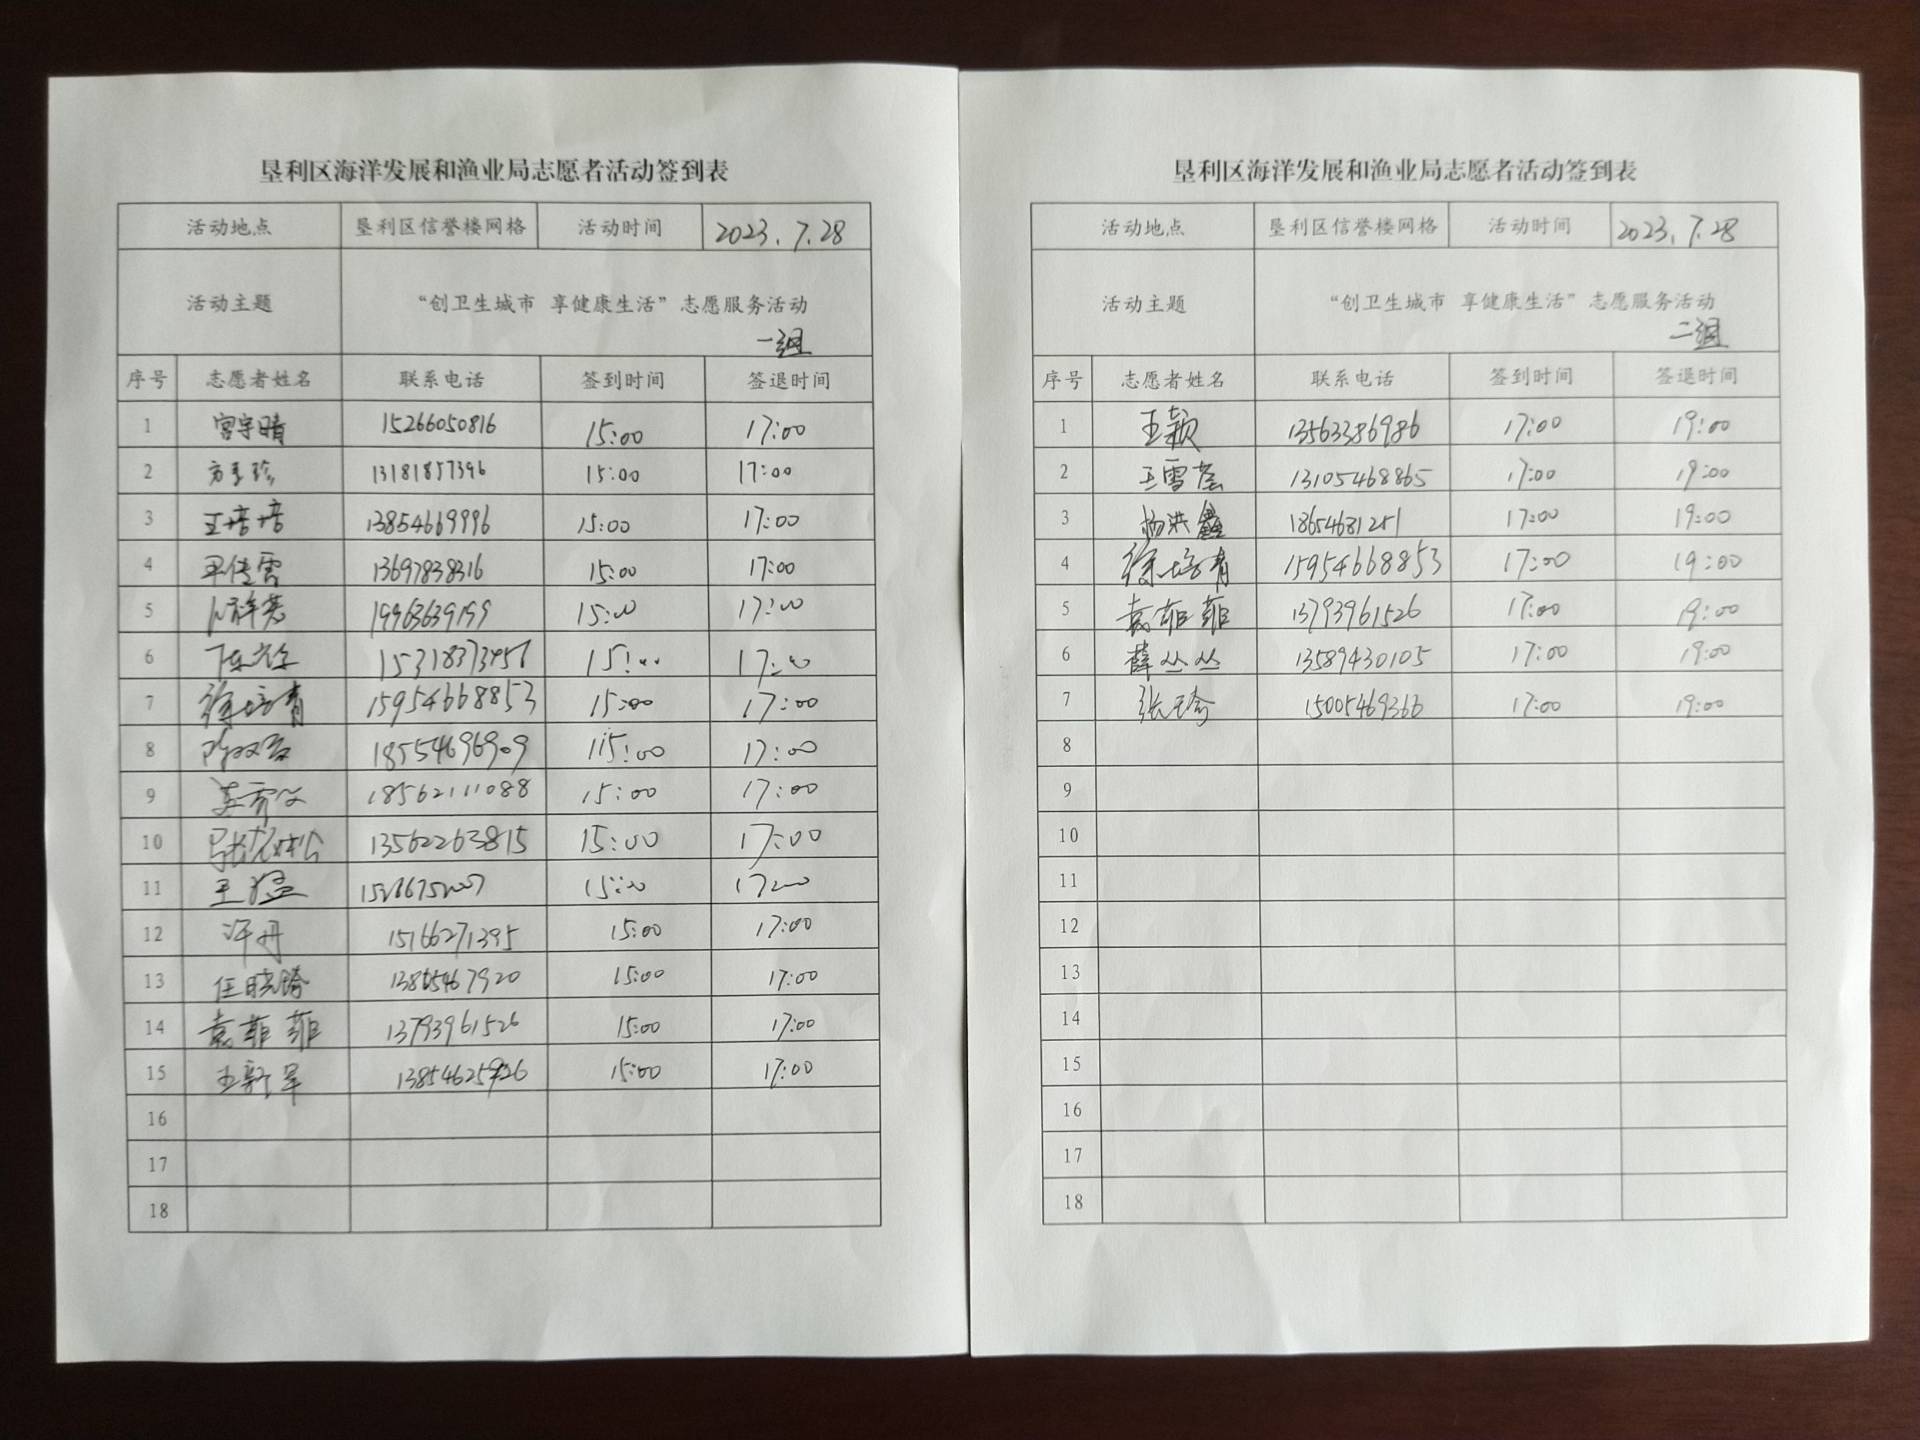 垦利区海洋发展和渔业局志愿者活动签到表
活动地点 垦利区信誉楼网格 活动时间 2023.7.28
活动主题 “创卫生城市 享健康生活”志愿服务活动
一组
序号 志愿者姓名 联系电话 签到时间 签退时间
1 宫宇晴 15266050816 15:00 17:00
2 13181857396 15:00 17:00
3 王培培 13854669996 15:00 17:00
4 13697838316 15:00 17:00
5 19963639199 15:00 17:00
6 15:00 17:00
7 徐培青 15954668853 15:00 17:00
8 18554696909 15:00 17:00
9 18562111088 15:00 17:00
10 13562263815 15:00 17:00
11 王猛 15:00 17:00
12 许丹 15166271395 15:00 17:00
13 任晓 15:00 17:00
14 袁菲菲 13793961526 15:00 17:00
15 王新军 15:00 17:00
16
17
18
垦利区海洋发展和渔业局志愿者活动签到表
活动地点 垦利区信誉楼网格 活动时间 2023.7.28
活动主题 “创卫生城市 享健康生活”志愿服务活动
二组
序号 志愿者姓名 联系电话 签到时间 签退时间
1 王颖 13563386986 17:00 19:00
2 王雪 13105468865 17:00 19:00
3 杨洪鑫 18654681251 17:00 19:00
4 徐培青 15954668853 17:00 19:00
5 袁菲菲 13793961526 17:00 19:00
6 薛丛丛 13589430105 17:00 19:00
7 张 15005469366 17:00 19:00
8
9
10
11
12
13
14
15
16
17
18